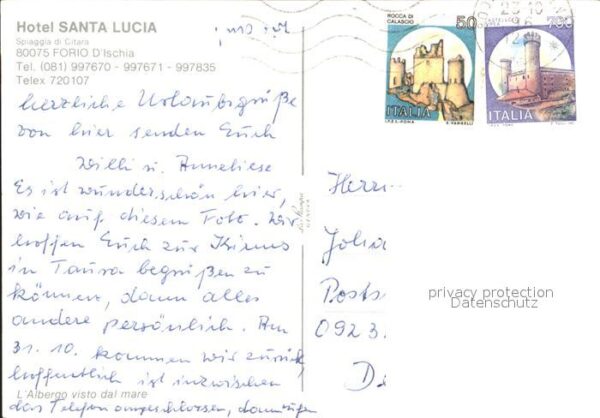 Hotel SANTA LUCIA
Spiaggia di Citara
80075 FORIO D'Ischia
Tel. (081) 997670 - 997671 - 997835
Telex 720107
herzliche Urlaubsgrüße
von hier senden Euch
Willi u. Anneliese
Es ist wunderschön hier,
wie auf diesem Foto. Wir
hoffen Euch zur Kirmes
in Taura begrüßen zu
können, dann alles
andere persönlich. Am
31. 10. kommen wir zurück,
hoffentlich ist inzwischen
das Telefon angeschlossen, dann
L'Albergo visto dal mare
ROCCA DI
CALASCIO
50
ITALIA
I.P.Z.S.-ROMA
E. VANGELLI
ITALIA
23 10
Herrn
Posts
0923
privacy protection
Datenschutz